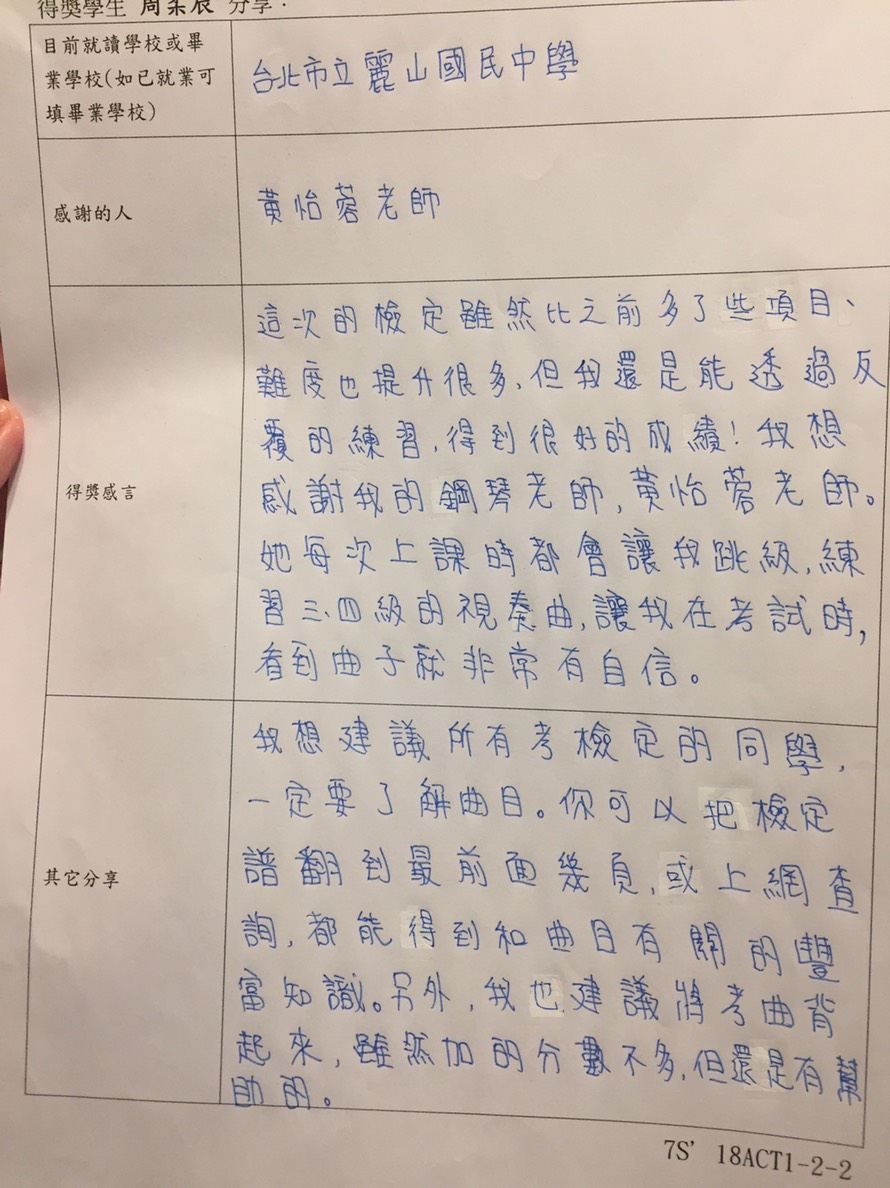 得獎學生 周柔辰 分享：
目前就讀學校或畢
業學校(如已就業可
填畢業學校)
台北市立麗山國民中學
感謝的人
黃怡蓉老師
得獎感言
這次的檢定雖然比之前多了些項目、
難度也提升很多,但我還是能透過反
覆的練習,得到很好的成績!我想
感謝我的鋼琴老師,黃怡蓉老師。
她每次上課時都會讓我跳級,練
習三、四級的視奏曲,讓我在考試時,
看到曲子就非常有自信。
其它分享
我想建議所有考檢定的同學,
一定要了解曲目。你可以把檢定
譜翻到最前面幾頁,或上網查
詢,都能得到和曲目有關的豐
富知識。另外,我也建議將考曲背
起來,雖然加的分數不多,但還是有幫
助的。
7S' 18ACT1-2-2